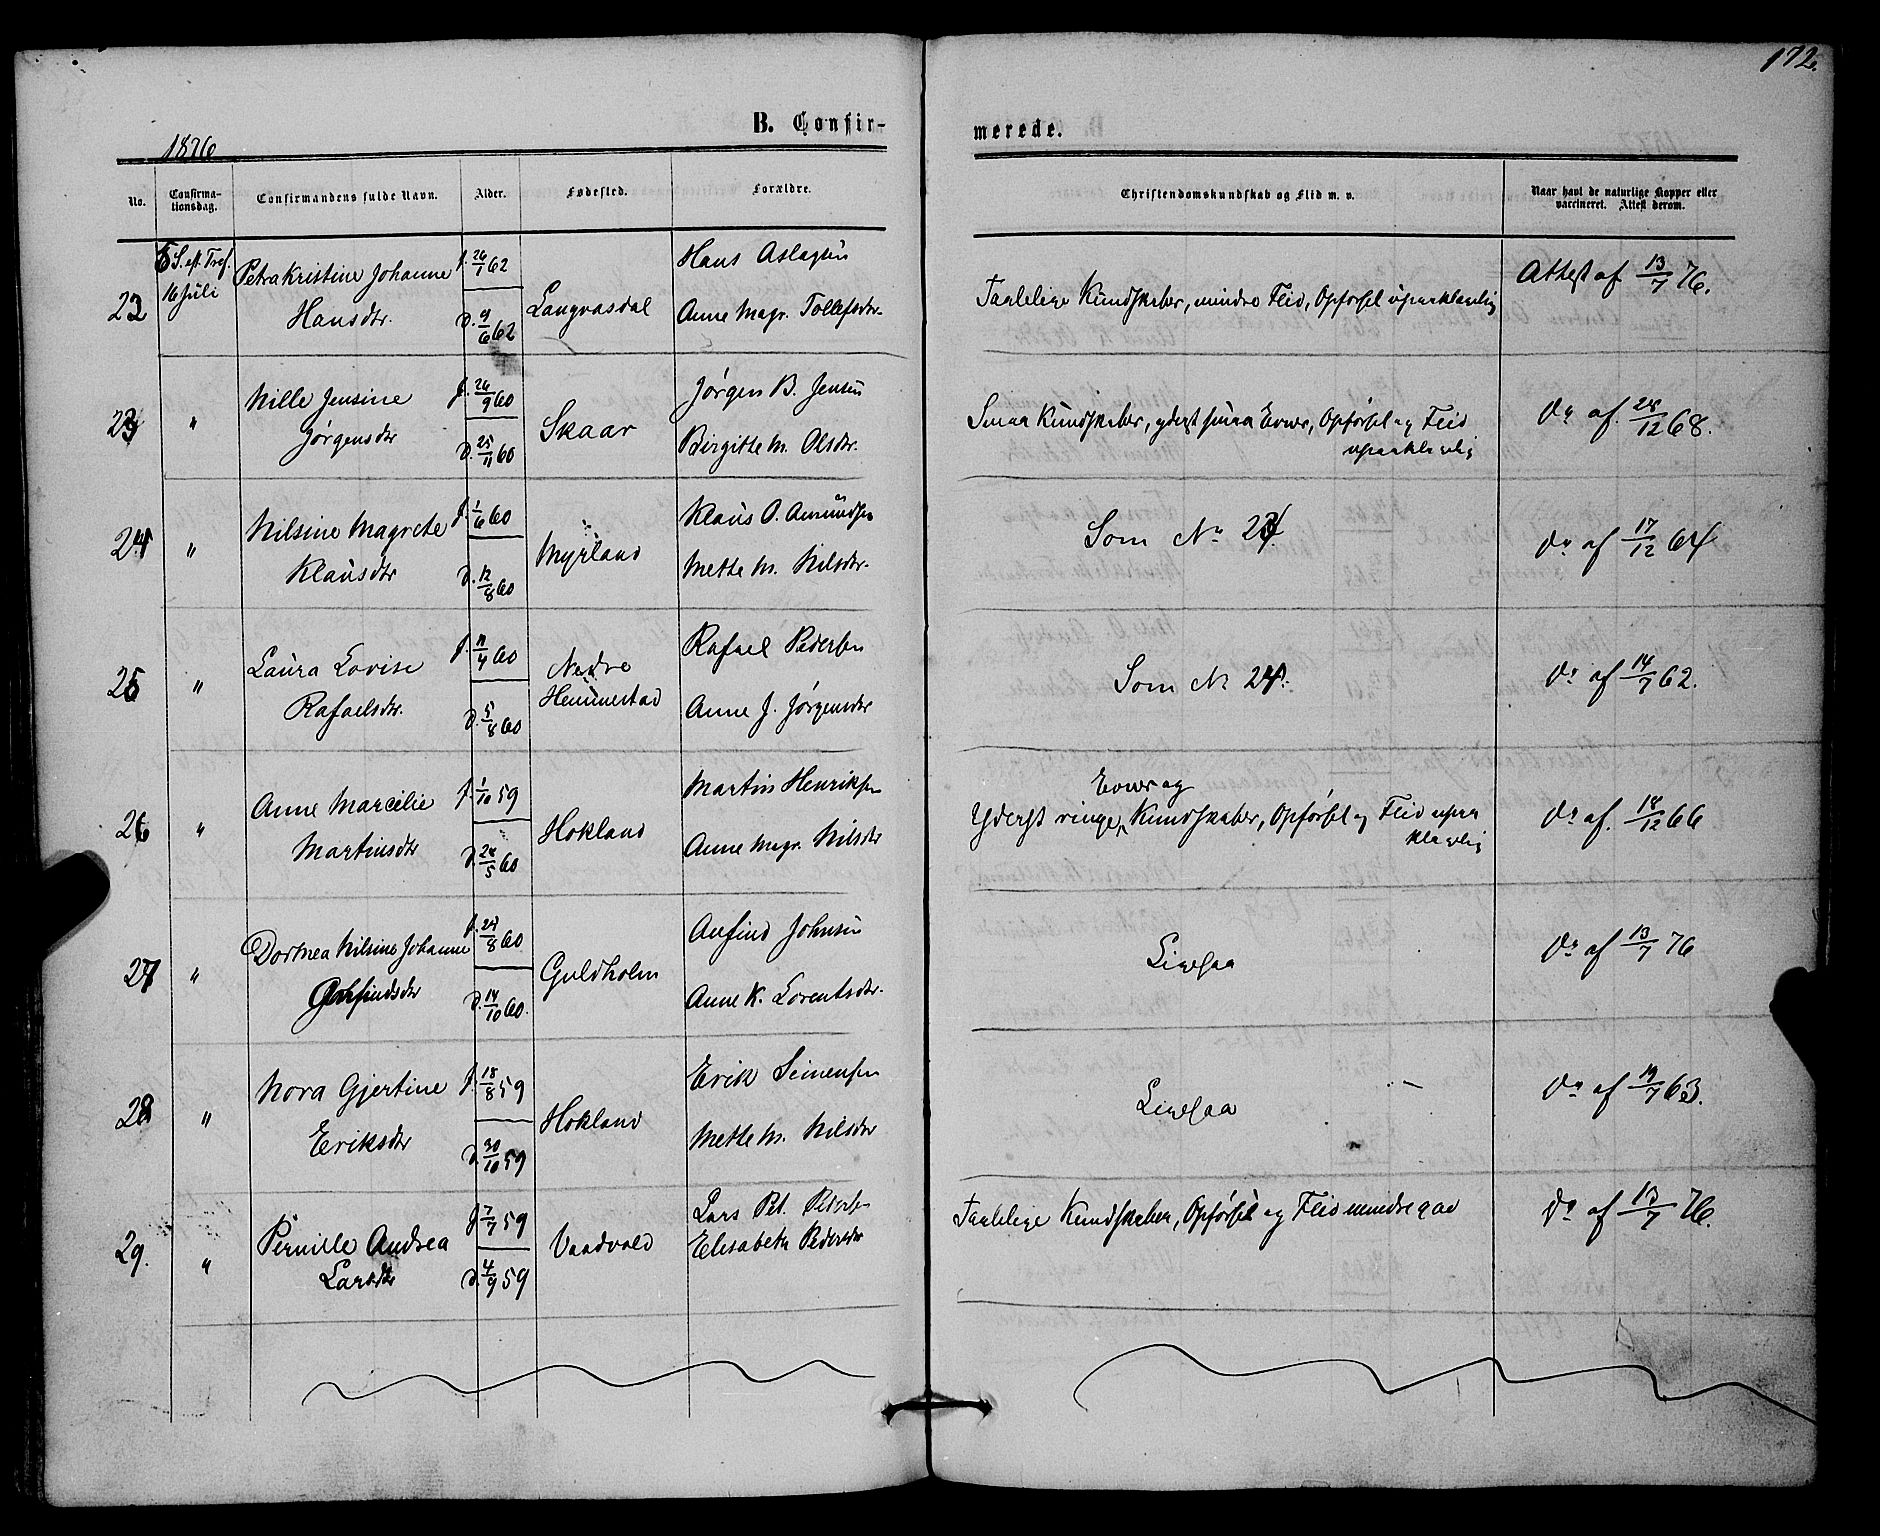 172.
B. Confir-
merede.
1876
No.
Confirma-
tionsdag.
Confirmandens fulde Navn.
Alder.
Fødested.
Forældre.
Christendomskundskab og Flid m. v.
Naar havt de naturlige Kopper eller
vaccineret. Attest derom.
22
5 S. eft. Tref.
16 Juli
Petra Kristine Johanne
Hansdtr.
f. 26/1 62
D. 9/6 62
Langvasdal
Hans Aslagsen
Anne Magr. Tollefsdtr.
Taalelige Kundskaber, mindre Flid, Opførsel upaaklagelig
Attest af 13/7 76.
23
"
Nille Jensine
Jørgensdtr
f. 26/9 60
D. 25/11 60
Skaar
Jørgen B. Jensen
Birgitte M. Olsdtr.
Smaa Kundskaber, yderst smaa Evner, Opførsel og Flid
upaaklagelig
Do af 28/12 68.
24
"
Nilsine Magrete
Klausdtr
f. 1/6 60
D. 12/8 60
Myrland
Klaus O. Amundsen
Mette M. Nilsdtr.
Som No 23.
Do af 17/12 64
25
"
Laura Lovise
Rafaelsdtr.
f. 11/4 60
D. 5/8 60
Nedre
Hemmestad
Rafael Pedersen
Anne J. Jørgensdtr
Som No 24.
Do af 14/7 62.
26
"
Anne Marcelie
Martinsdtr
f. 1/10 59
D. 28/5 60
Hokland
Martin Henriksen
Anne Magr. Nilsdtr
Evner og
Yderst ringe Kundskaber, Opførsel og Flid upaa
klagelig
Do af. 18/12 66
27
"
Dortnea Nilsine Johanne
Anfindsdtr
f. 29/8 60
D. 14/10 60.
Guldholm
Anfind Johnsen
Anne K. Lorentsdtr.
Ligesaa
Do af 13/7 76
28
"
Nora Gjertine
Eriksdtr
f. 18/8 59
D. 30/10 59
Hokland
Erik Simensen
Mette M. Nilsdtr
Ligesaa
Do af 19/7 63.
29.
"
Pernille Andrea
Larsdtr
f 7/7 59
D. 4/9 59
Vaadvold
Lars Pet. Pedersen
Elisabeth Pedersdtr
Taalelige Kundskaber, Opførsel og Flid mindre god
Do af 13/7 76.